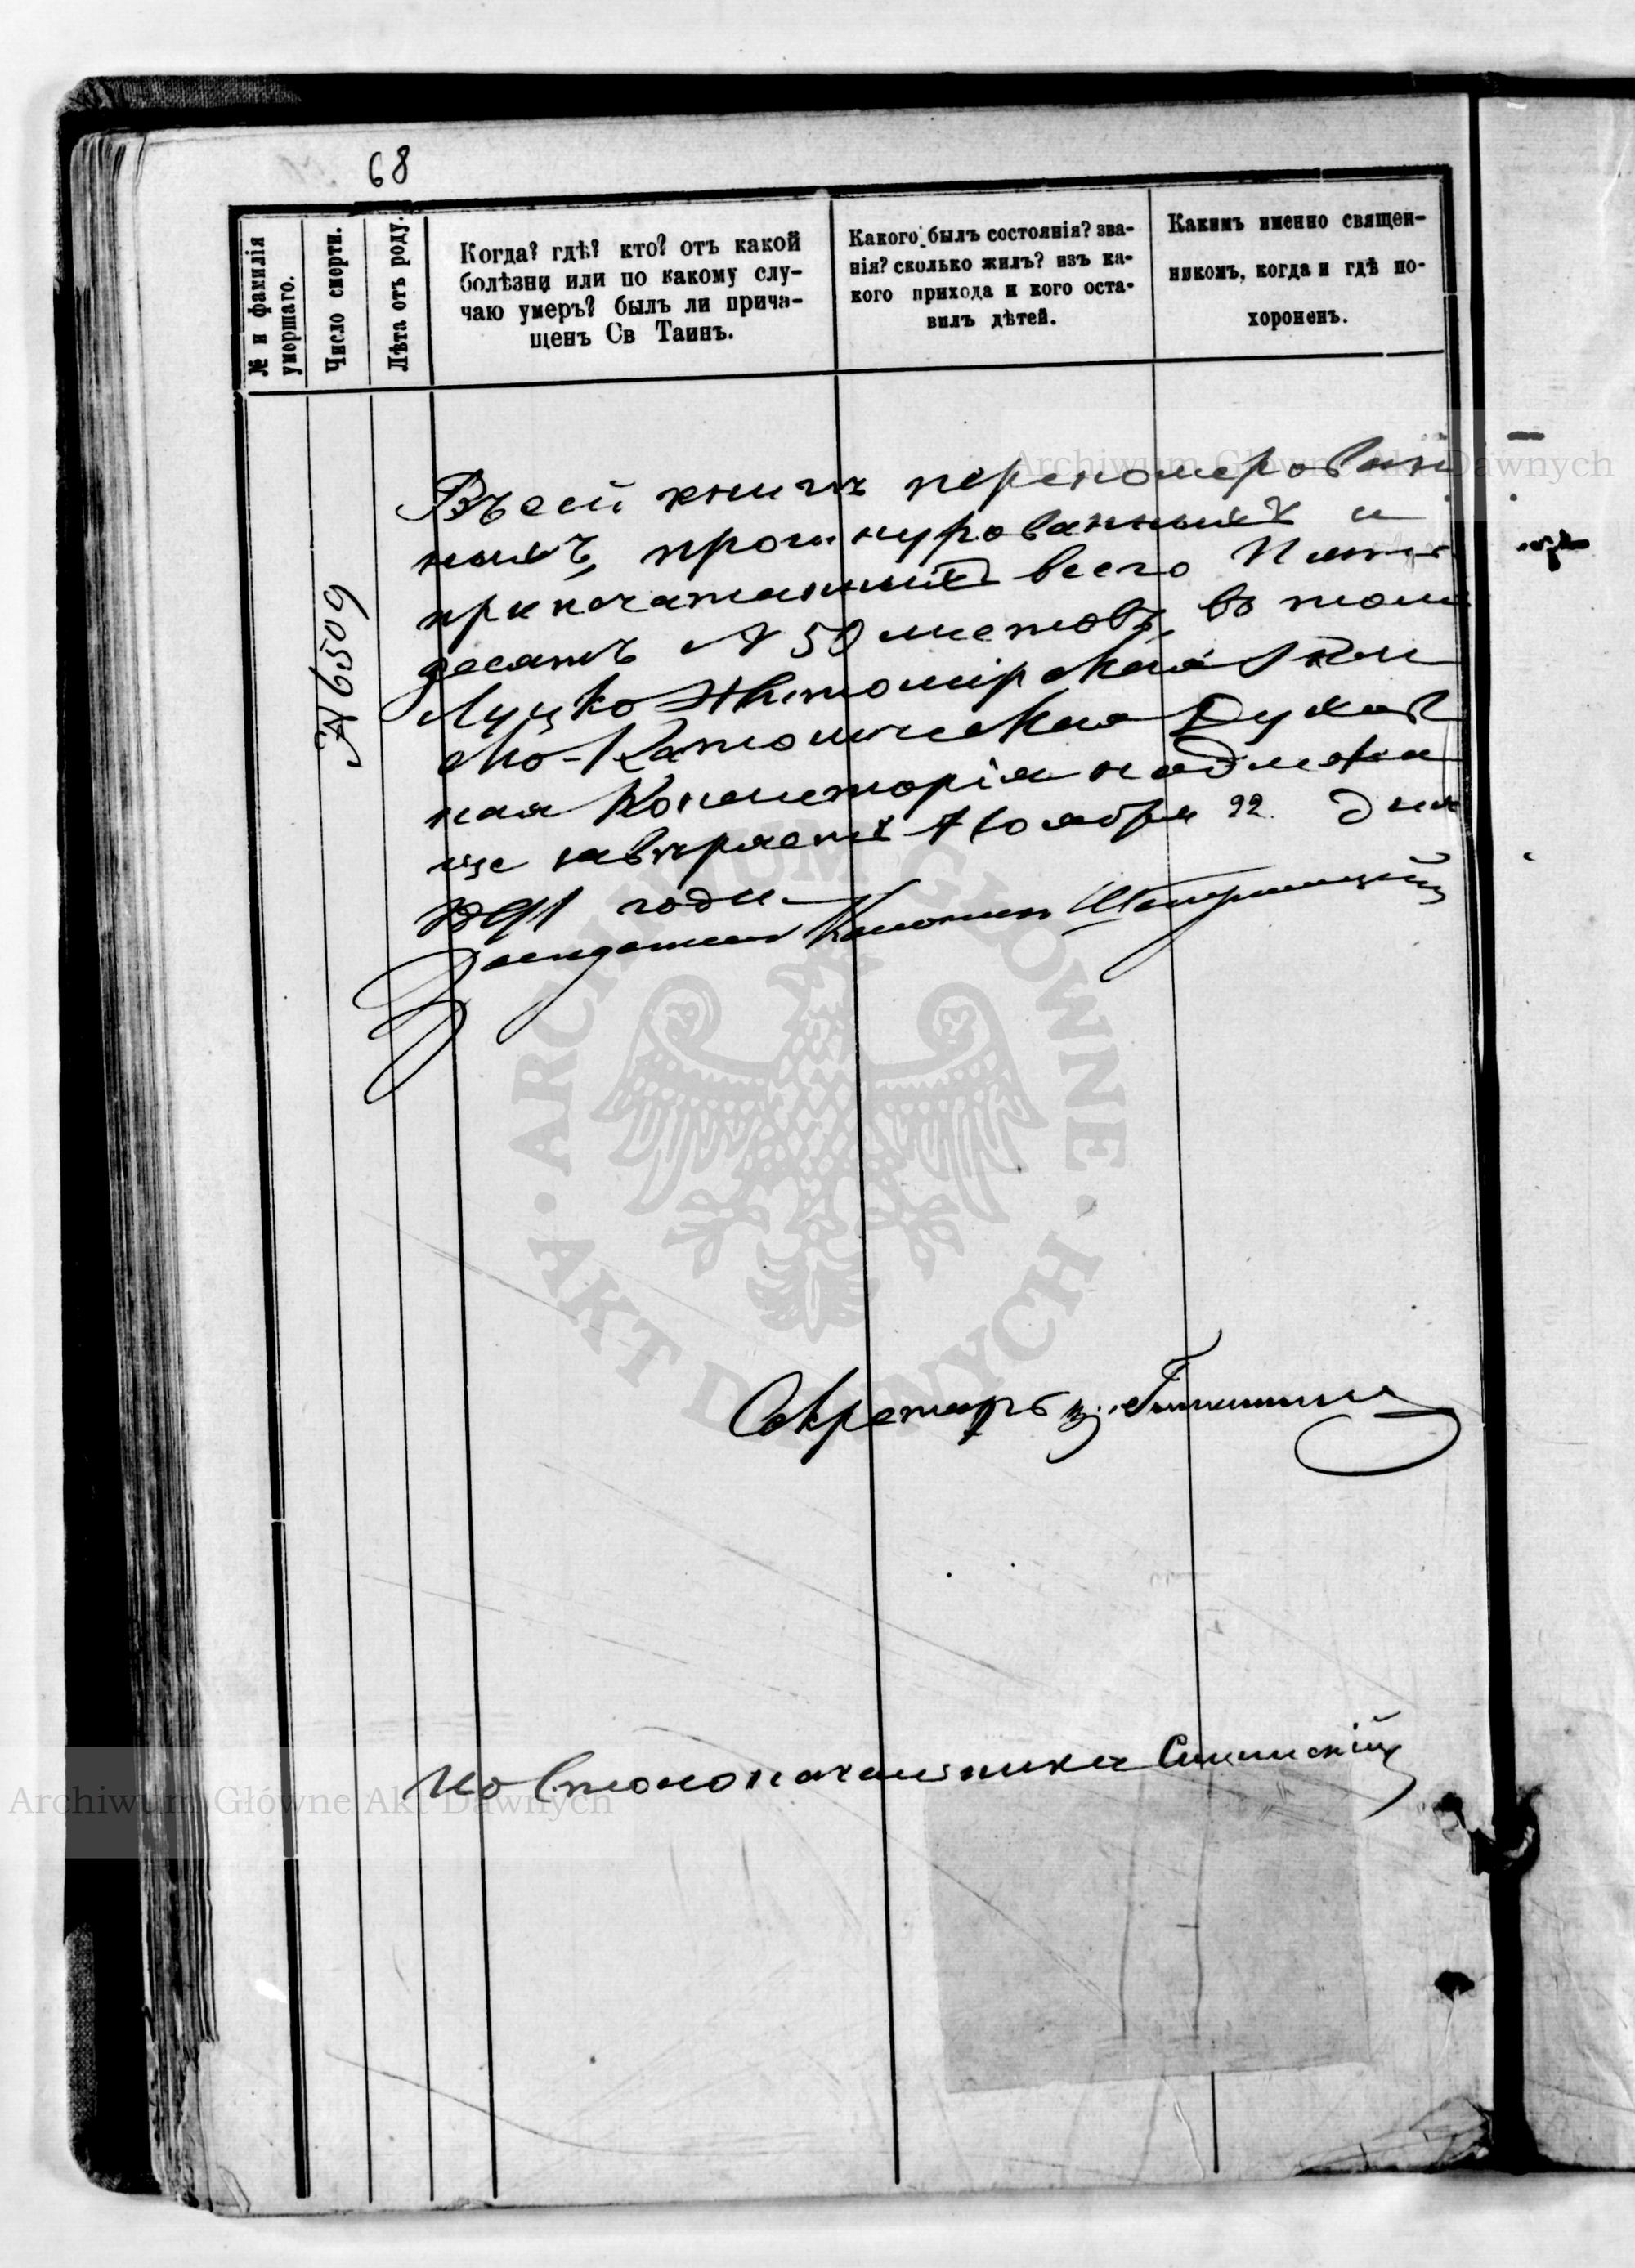 68
№ и фамилія
умершаго.
Число смерти.
Лѣта отъ роду.
Когда? гдѣ? кто? отъ какой
болѣзни или по какому слу-
чаю умеръ? былъ ли прича-
щенъ Св Таинъ.
Какого былъ состоянія? зва-
нія? сколько жилъ? изъ ка-
кого прихода и кого оста-
вилъ дѣтей.
Какимъ именно священ-
никомъ, когда и гдѣ по-
хороненъ.
№ 6509
Въ сей книгѣ перономерован
ныхъ, прошнурованныхъ и
припечатанныхъ всего Пять
десятъ № 50 листовъ, въ томъ
Луцко Житомірская Рим
ско-Католическая Духов
ная Консисторія надлежа
ще завѣряетъ Ноября 22 дня
1891 года.
Засѣдатель Каноникъ
Секретарь
Столоначальника
Archiwum Główne Akt Dawnych
Archiwum Główne Akt Dawnych
ARCHIWUM GŁÓWNE · AKT DAWNYCH ·